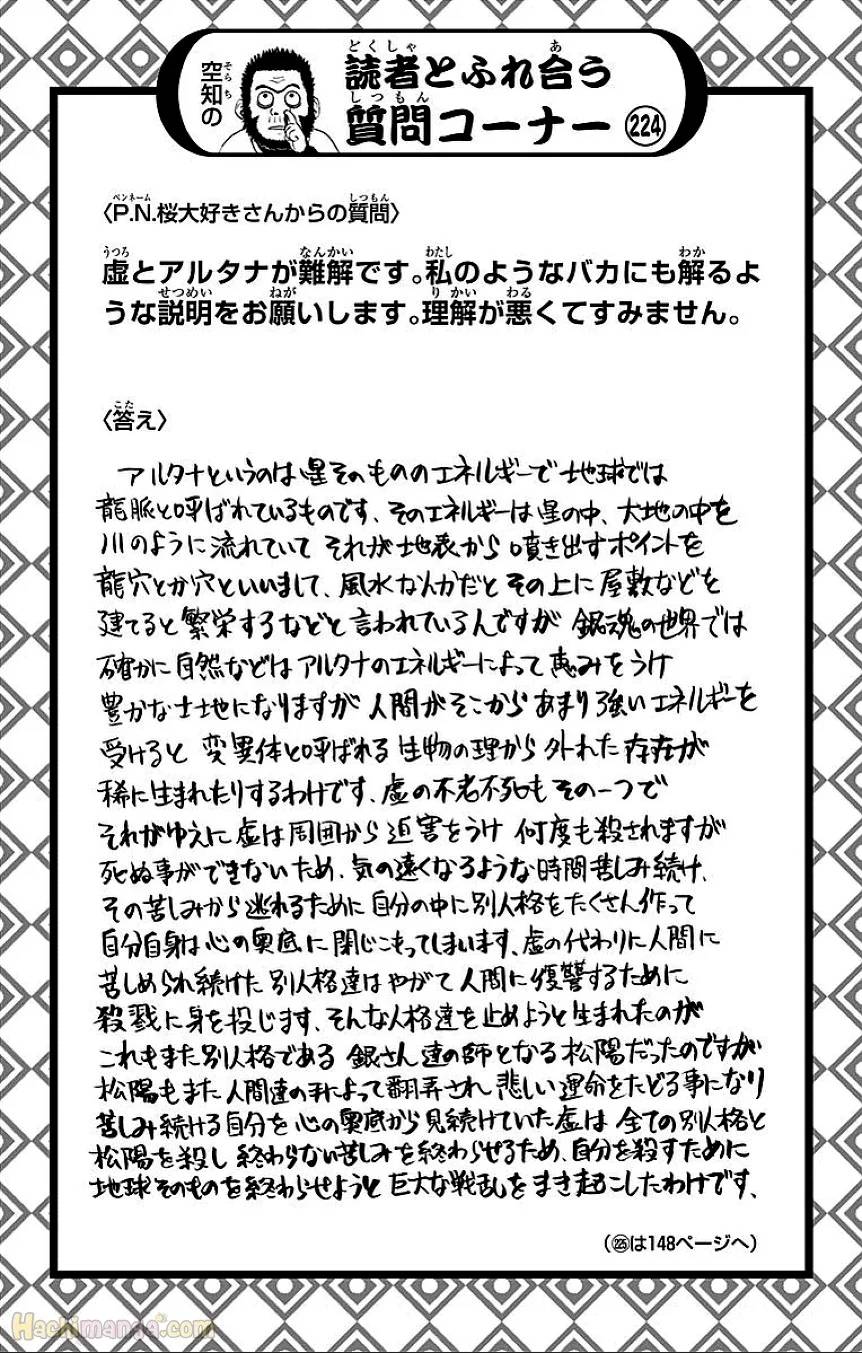 空知の
読者とふれ合う
質問コーナー 224
〈P.N.桜大好きさんからの質問〉
虚とアルタナが難解です。私のようなバカにも解るよ
うな説明をお願いします。理解が悪くてすみません。
〈答え〉
アルタナというのは星そのもののエネルギーで地球では
龍脈と呼ばれているものです、そのエネルギーは星の中、大地の中を
川のように流れていてそれが地表から噴き出すポイントを
龍穴とか穴といいまして、風水なんかだとその上に屋敷などを
建てると繁栄するなどと言われているんですが銀魂の世界では
確かに自然などはアルタナのエネルギーによって恵みをうけ
豊かな土地になりますが人間がそこからあまり強いエネルギーを
受けると変異体と呼ばれる生物の理から外れた存在が
稀に生まれたりするわけです、虚の不老不死もその一つで
それがゆえに虚は周囲から迫害をうけ何度も殺されますが
死ぬ事ができないため、気の遠くなるような時間苦しみ続け、
その苦しみから逃れるために自分の中に別人格をたくさん作って
自分自身は心の奥底に閉じこもってしまいます、虚の代わりに人間に
苦しめられ続けた別人格達はやがて人間に復讐するために
殺戮に身を投じます、そんな人格達を止めようと生まれたのが
これもまた別人格である銀さん達の師となる松陽だったのですが
松陽もまた人間達の手によって翻弄され悲しい運命をたどる事になり
苦しみ続ける自分を心の奥底から見続けていた虚は全ての別人格と
松陽を殺し終わらない苦しみを終わらせるため、自分を殺すために
地球そのものを終わらせようと巨大な戦乱をまき起こしたわけです、
（225は148ページへ）
Hachimanga.com